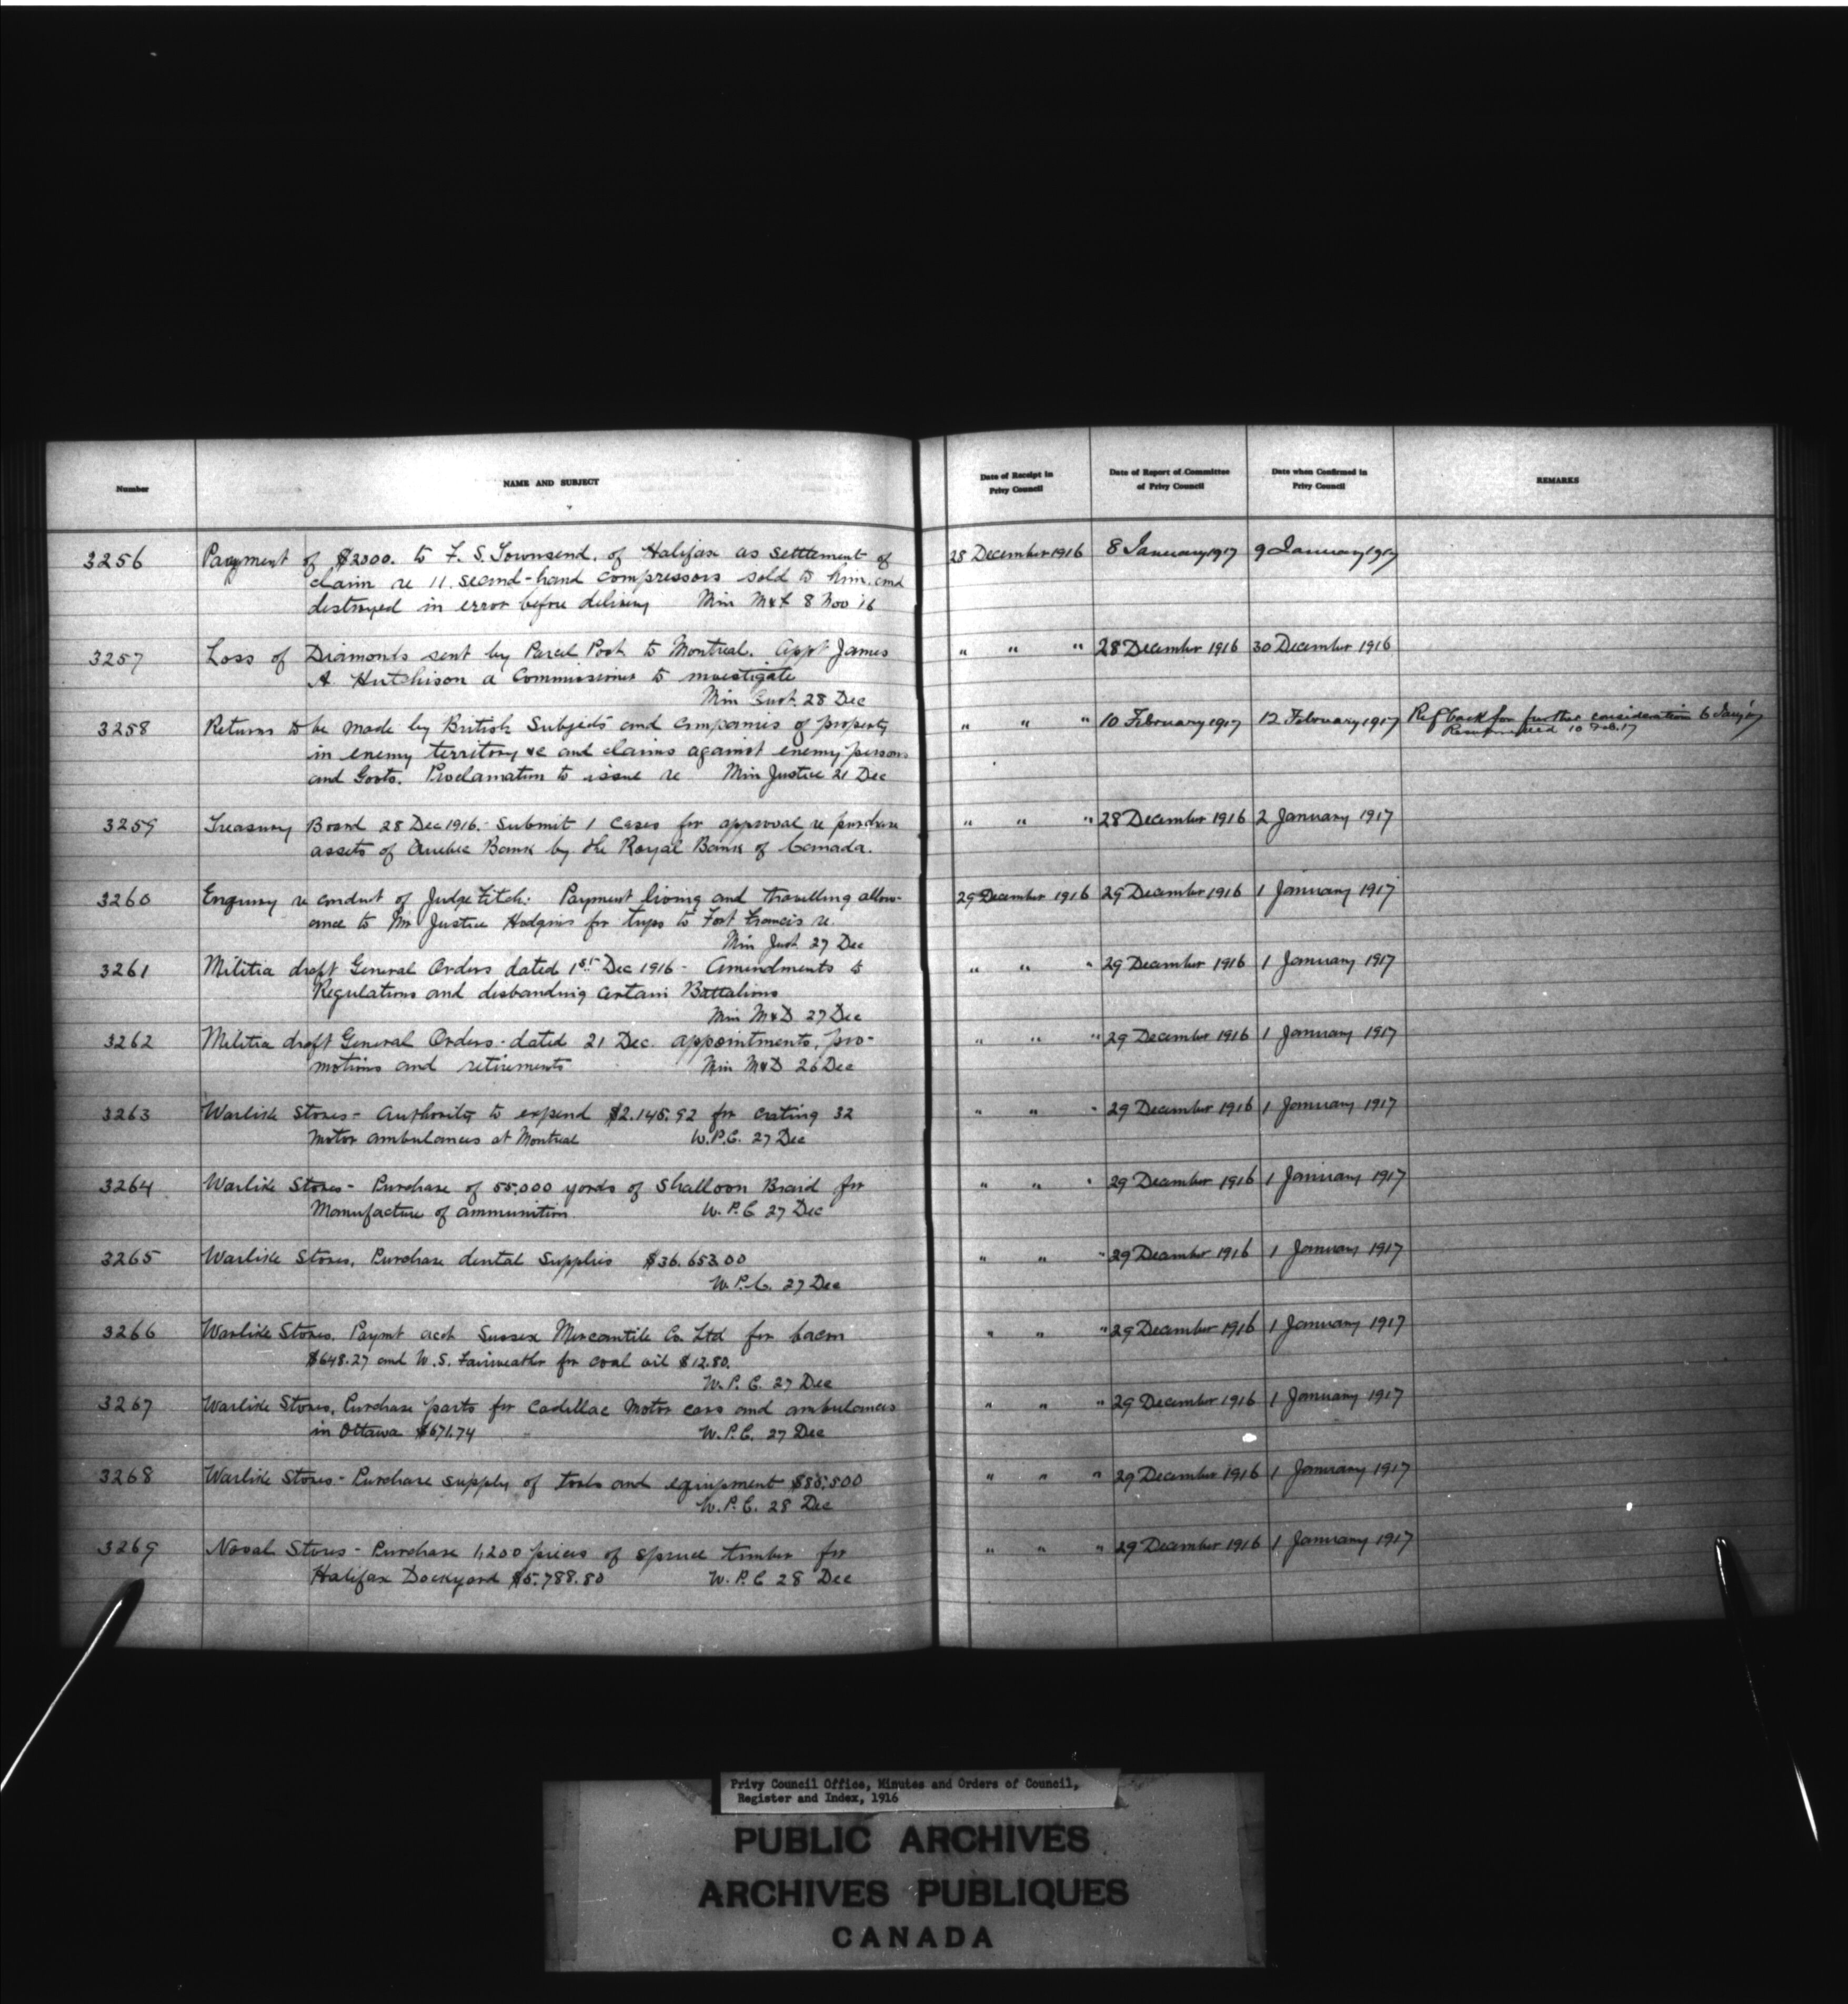 Number
NAME AND SUBJECT
Date of Receipt in
Privy Council
Date of Report of Committee
of Privy Council
Date when Confirmed in
Privy Council
REMARKS
3256 Payment of $2000. to F. S. Townsend. of Halifax as settlement of 28 December 1916 8 January 1917 9 January 1917
claim re 11. second-hand compressors sold to him and
destroyed in error before delivery Min 8 Nov '16
3257 Loss of Diamonds sent by Parcel Post to Montreal. Appt James " " " 28 December 1916 30 December 1916
A Hutchison a Commissioner to investigate
Min Just. 28 Dec
3258 Returns to be made by British Subjects and companies of property " " " 10 February 1917 12 February 1917 Ref back for further consideration 6 Jany '17
in enemy territory &c and claims against enemy persons 10 Feb. 17
and Govts. Proclamation to issue re Min Justice 21 Dec
3259 Treasury Board 28 Dec 1916. Submit 1 Cases for approval re purchase " " " 28 December 1916 2 January 1917
assets of Quebec Bank by the Royal Bank of Canada.
3260 Enquiry re conduct of Judge Fitch. Payment living and travelling allow- 29 December 1916 29 December 1916 1 January 1917
ance to Mr Justice Hodgins for trips to Fort Francis re.
Min Just. 27 Dec
3261 Militia draft General Orders dated 1st Dec 1916 - Amendments to " " " 29 December 1916 1 January 1917
Regulations and disbanding certain Battalions
Min M&D 27 Dec
3262 Militia draft General Orders - dated 21 Dec. appointments, pro- " " " 29 December 1916 1 January 1917
motions and retirements Min M&D 26 Dec
3263 Warlike Stores - Authority to expend $2,145.92 for crating 32 " " " 29 December 1916 1 January 1917
motor ambulances at Montreal W.P.C. 27 Dec
3264 Warlike Stores - Purchase of 55,000 yards of Shalloon Braid for " " " 29 December 1916 1 January 1917
Manufacture of ammunition W.P.C 27 Dec
3265 Warlike Stores, Purchase dental Supplies $36.653.00 " " " 29 December 1916 1 January 1917
W.P.C. 27 Dec
3266 Warlike Stores. Paymt acct Sussex Mercantile Co. Ltd for bacon " " " 29 December 1916 1 January 1917
$648.27 and W.S. Fairweather for coal oil $12.80.
W.P.C. 27 Dec
3267 Warlike Stores, Purchase parts for Cadillac Motor cars and ambulances " " " 29 December 1916 1 January 1917
in Ottawa $671.74 W.P.C. 27 Dec
3268 Warlike Stores - Purchase supply of tools and equipment $85,500 " " " 29 December 1916 1 January 1917
W.P.C. 28 Dec
3269 Naval Stores - Purchase 1,200 pieces of spruce timber for " " " 29 December 1916 1 January 1917
Halifax Dockyard $5,788.80 W.P.C 28 Dec
Privy Council Office, Minutes and Orders of Council,
Register and Index, 1916
PUBLIC ARCHIVES
ARCHIVES PUBLIQUES
CANADA